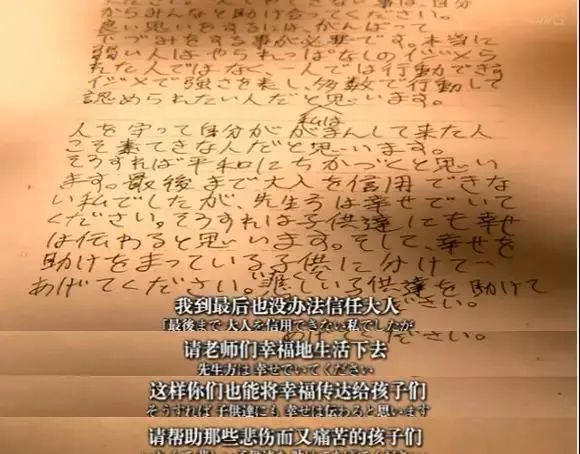 からみんなと助け合ってください。
良い思いをするには、がんばって
する事が必要です。本当に
弱い人はやられっぱなしのイジメら
れた人ではなく、一人では行動できず
イジメで強さを表し、多数で行動して
認められたい人だと思います。
私は
人を守って自分ががまんして来た人
こそ素てきな人だと思います。
そうすれば平和にちかづくと思い
ます。最後まで大人を信用できな
い私でしたが、先生方は幸せでいて
ください。そうすれば子供達にも幸せ
は伝わると思います。そして、幸せを
助けをまっている子供に分けて
あげてください。悲しい子供達を助けて
我到最后也没办法信任大人
「最後まで 大人を信用できない私でしたが
ださい。
请老师们幸福地生活下去
先生方は 幸せでいてください
这样你们也能将幸福传达给孩子们
そうすれば 子供達にも 幸せは伝わると思います
请帮助那些悲伤而又痛苦的孩子们